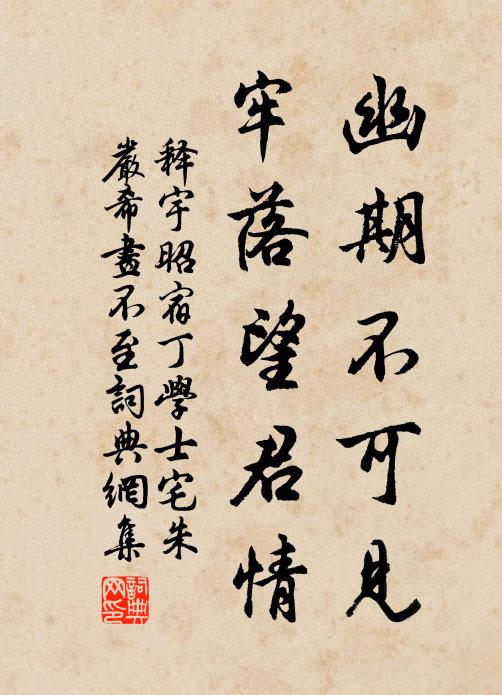 幽期不可見
牢落望君情
释宇昭宿丁學士宅朱
嚴希晝不至詞典網集
詞典網印